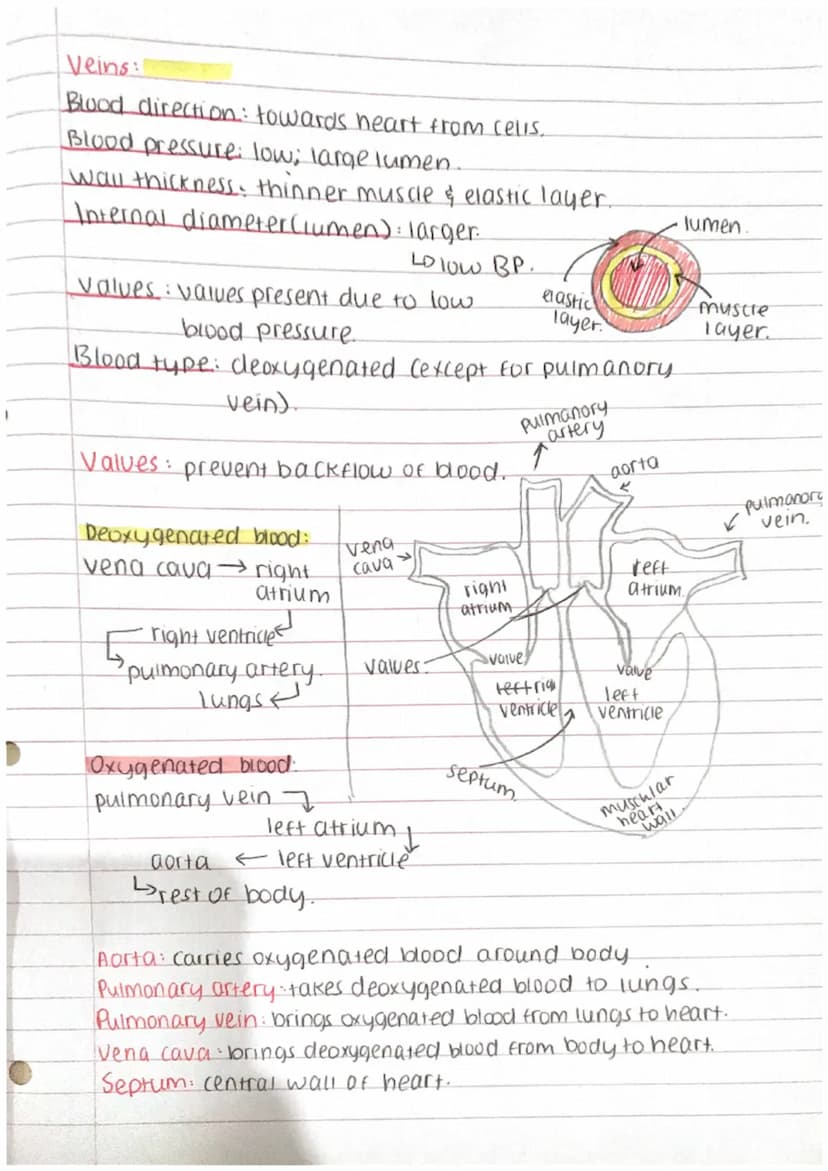 Veins:
Blood direction: towards heart from cells.
Blood pressure: low; large lumen.
Wall thickness: thinner muscle & elastic layer.
Internal diameter(lumen): larger.
↳ low BP.
lumen.
elastic layer.
muscle layer.
Values: values present due to low
blood pressure.
Blood type: deoxygenated (except for pulmanory
vein).
Values: prevent backflow of blood.
pulmanory
artery
aorta
pulmanory
vein.
vena
cava →
right
atrium
left
atrium.
values.
valve
valve
right
ventricle
left
ventricle
septum.
muscular
heart
wall.
Deoxygenated blood:
vena cava → right
atrium
right ventricle
pulmonary artery.
lungs
Oxygenated blood:
pulmonary vein
left atrium
aorta ← left ventricle
↳ rest of body.
Aorta: carries oxygenated blood around body.
Pulmonary artery: takes deoxygenated blood to lungs.
Pulmonary vein: brings oxygenated blood from lungs to heart.
Vena cava: brings deoxygenated blood from body to heart.
Septum: central wall of heart.